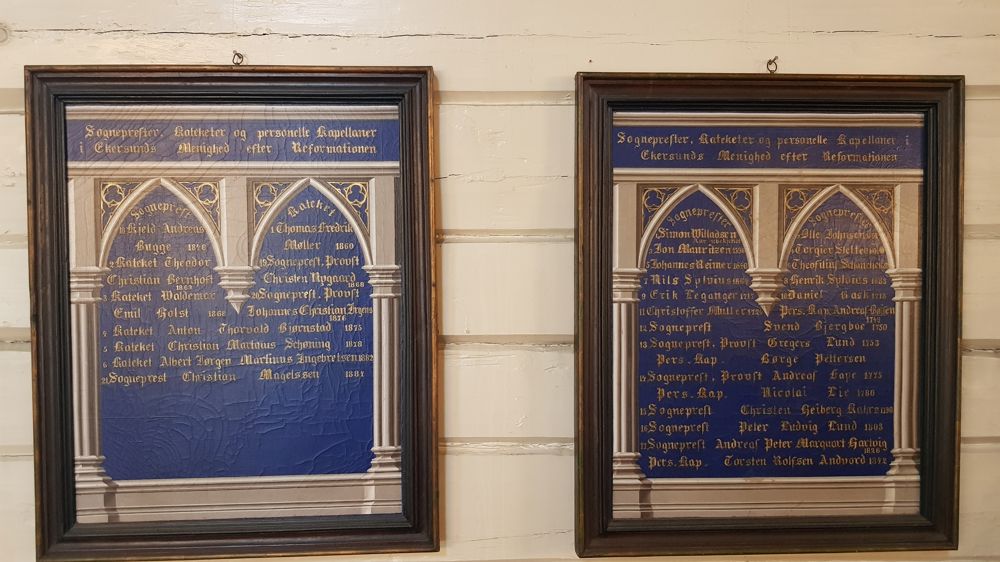 Sogneprester, Kateketer og personelle Kapellaner
i Ekersunds Menighed efter Reformationen
Sogneprest
18 Kjeld Andreas
Bugge 1840
2 Kateket Theodor
Christian Bernhoft
3 Kateket Waldemar
Emil Holst 1868
4 Kateket Anton Thorvald Bjørnstad 1875
5 Kateket Christian Martinus Schøning 1878
6 Kateket Albert Jørgen Martinus Ingebretsen 1882
21 Sogneprest Christian Magelssen 1881
Kateket
1 Thomas Fredrik
Møller 1860
19 Sogneprest, Provst
Christen Nygaard
1868
20 Sogneprest, Provst
Johannes Christian
1876
Sogneprester, Kateketer og personelle Kapellaner i
Ekersunds Menighed efter Reformationen
Sogneprester
1 Simon Willadsen
3 Jon Mauritzen
5 Johannes Reimer
7 Nils Sylvius
9 Erik Leganger
11 Christoffer Müller
12 Sogneprest Svend Bjergboe 1750
13 Sogneprest, Provst Gregers Lund 1753
Pers. Kap. Børge Pettersen
14 Sogneprest, Provst Andreas Faye 1775
Pers. Kap. Nicolai Lie 1780
15 Sogneprest Christen Heiberg
16 Sogneprest Peter Ludvig Lund 1803
17 Sogneprest Andreas Peter Marquart Harwig
1826
Pers. Kap. Torsten Rolfsen Andvord 1842
Sogneprester
Olle Johnsen
Torgier
Theofilus
8 Henrik Sylvius
10 Daniel
Pers. Kap. Andreas
1749